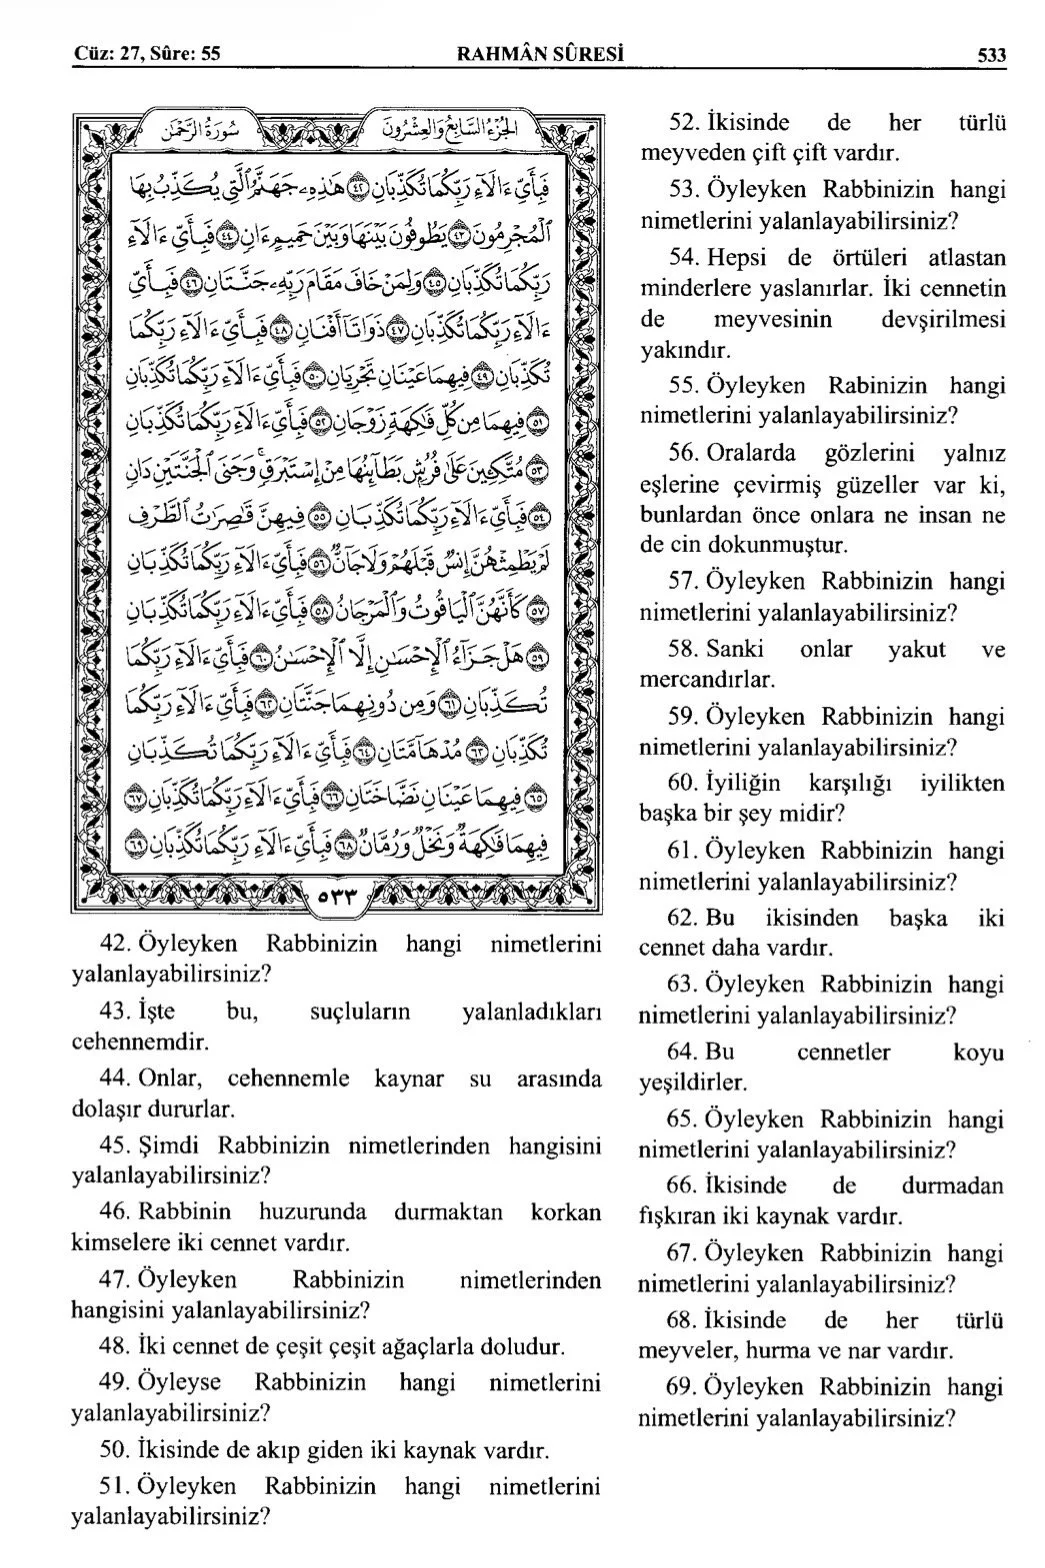 Cüz: 27, Sûre: 55
RAHMÂN SÛRESİ
533
سُورَةُ الرَّحْمٰنِ
الجُزْءُ السَّابِعُ وَالْعِشْرُونَ
فَبِأَيِّ ءَالَآءِ رَبِّكُمَا تُكَذِّبَانِ ٤٢ هَٰذِهِۦ جَهَنَّمُ ٱلَّتِي يُكَذِّبُ بِهَا
ٱلْمُجْرِمُونَ ٤٣ يَطُوفُونَ بَيْنَهَا وَبَيْنَ حَمِيمٍ ءَانٍ ٤٤ فَبِأَيِّ ءَالَآءِ
رَبِّكُمَا تُكَذِّبَانِ ٤٥ وَلِمَنْ خَافَ مَقَامَ رَبِّهِۦ جَنَّتَانِ ٤٦ فَبِأَيِّ
ءَالَآءِ رَبِّكُمَا تُكَذِّبَانِ ٤٧ ذَوَاتَآ أَفْنَانٍ ٤٨ فَبِأَيِّ ءَالَآءِ رَبِّكُمَا
تُكَذِّبَانِ ٤٩ فِيهِمَا عَيْنَانِ تَجْرِيَانِ ٥٠ فَبِأَيِّ ءَالَآءِ رَبِّكُمَا تُكَذِّبَانِ
٥١ فِيهِمَا مِن كُلِّ فَٰكِهَةٍ زَوْجَانِ ٥٢ فَبِأَيِّ ءَالَآءِ رَبِّكُمَا تُكَذِّبَانِ
٥٣ مُتَّكِـِٔينَ عَلَىٰ فُرُشٍۭ بَطَآئِنُهَا مِنْ إِسْتَبْرَقٍۚ وَجَنَى ٱلْجَنَّتَيْنِ دَانٍ
٥٤ فَبِأَيِّ ءَالَآءِ رَبِّكُمَا تُكَذِّبَانِ ٥٥ فِيهِنَّ قَٰصِرَٰتُ ٱلطَّرْفِ
لَمْ يَطْمِثْهُنَّ إِنسٌ قَبْلَهُمْ وَلَا جَآنٌّ ٥٦ فَبِأَيِّ ءَالَآءِ رَبِّكُمَا تُكَذِّبَانِ
٥٧ كَأَنَّهُنَّ ٱلْيَاقُوتُ وَٱلْمَرْجَانُ ٥٨ فَبِأَيِّ ءَالَآءِ رَبِّكُمَا تُكَذِّبَانِ
٥٩ هَلْ جَزَآءُ ٱلْإِحْسَٰنِ إِلَّا ٱلْإِحْسَٰنُ ٦٠ فَبِأَيِّ ءَالَآءِ رَبِّكُمَا
تُكَذِّبَانِ ٦١ وَمِن دُونِهِمَا جَنَّتَانِ ٦٢ فَبِأَيِّ ءَالَآءِ رَبِّكُمَا
تُكَذِّبَانِ ٦٣ مُدْهَآمَّتَانِ ٦٤ فَبِأَيِّ ءَالَآءِ رَبِّكُمَا تُكَذِّبَانِ
٦٥ فِيهِمَا عَيْنَانِ نَضَّاخَتَانِ ٦٦ فَبِأَيِّ ءَالَآءِ رَبِّكُمَا تُكَذِّبَانِ ٦٧
فِيهِمَا فَٰكِهَةٌ وَنَخْلٌ وَرُمَّانٌ ٦٨ فَبِأَيِّ ءَالَآءِ رَبِّكُمَا تُكَذِّبَانِ ٦٩
٥٣٣
42. Öyleyken Rabbinizin hangi nimetlerini
yalanlayabilirsiniz?
43. İşte bu, suçluların yalanladıkları
cehennemdir.
44. Onlar, cehennemle kaynar su arasında
dolaşır dururlar.
45. Şimdi Rabbinizin nimetlerinden hangisini
yalanlayabilirsiniz?
46. Rabbinin huzurunda durmaktan korkan
kimselere iki cennet vardır.
47. Öyleyken Rabbinizin nimetlerinden
hangisini yalanlayabilirsiniz?
48. İki cennet de çeşit çeşit ağaçlarla doludur.
49. Öyleyse Rabbinizin hangi nimetlerini
yalanlayabilirsiniz?
50. İkisinde de akıp giden iki kaynak vardır.
51. Öyleyken Rabbinizin hangi nimetlerini
yalanlayabilirsiniz?
52. İkisinde de her türlü
meyveden çift çift vardır.
53. Öyleyken Rabbinizin hangi
nimetlerini yalanlayabilirsiniz?
54. Hepsi de örtüleri atlastan
minderlere yaslanırlar. İki cennetin
de meyvesinin devşirilmesi
yakındır.
55. Öyleyken Rabinizin hangi
nimetlerini yalanlayabilirsiniz?
56. Oralarda gözlerini yalnız
eşlerine çevirmiş güzeller var ki,
bunlardan önce onlara ne insan ne
de cin dokunmuştur.
57. Öyleyken Rabbinizin hangi
nimetlerini yalanlayabilirsiniz?
58. Sanki onlar yakut ve
mercandırlar.
59. Öyleyken Rabbinizin hangi
nimetlerini yalanlayabilirsiniz?
60. İyiliğin karşılığı iyilikten
başka bir şey midir?
61. Öyleyken Rabbinizin hangi
nimetlerini yalanlayabilirsiniz?
62. Bu ikisinden başka iki
cennet daha vardır.
63. Öyleyken Rabbinizin hangi
nimetlerini yalanlayabilirsiniz?
64. Bu cennetler koyu
yeşildirler.
65. Öyleyken Rabbinizin hangi
nimetlerini yalanlayabilirsiniz?
66. İkisinde de durmadan
fışkıran iki kaynak vardır.
67. Öyleyken Rabbinizin hangi
nimetlerini yalanlayabilirsiniz?
68. İkisinde de her türlü
meyveler, hurma ve nar vardır.
69. Öyleyken Rabbinizin hangi
nimetlerini yalanlayabilirsiniz?